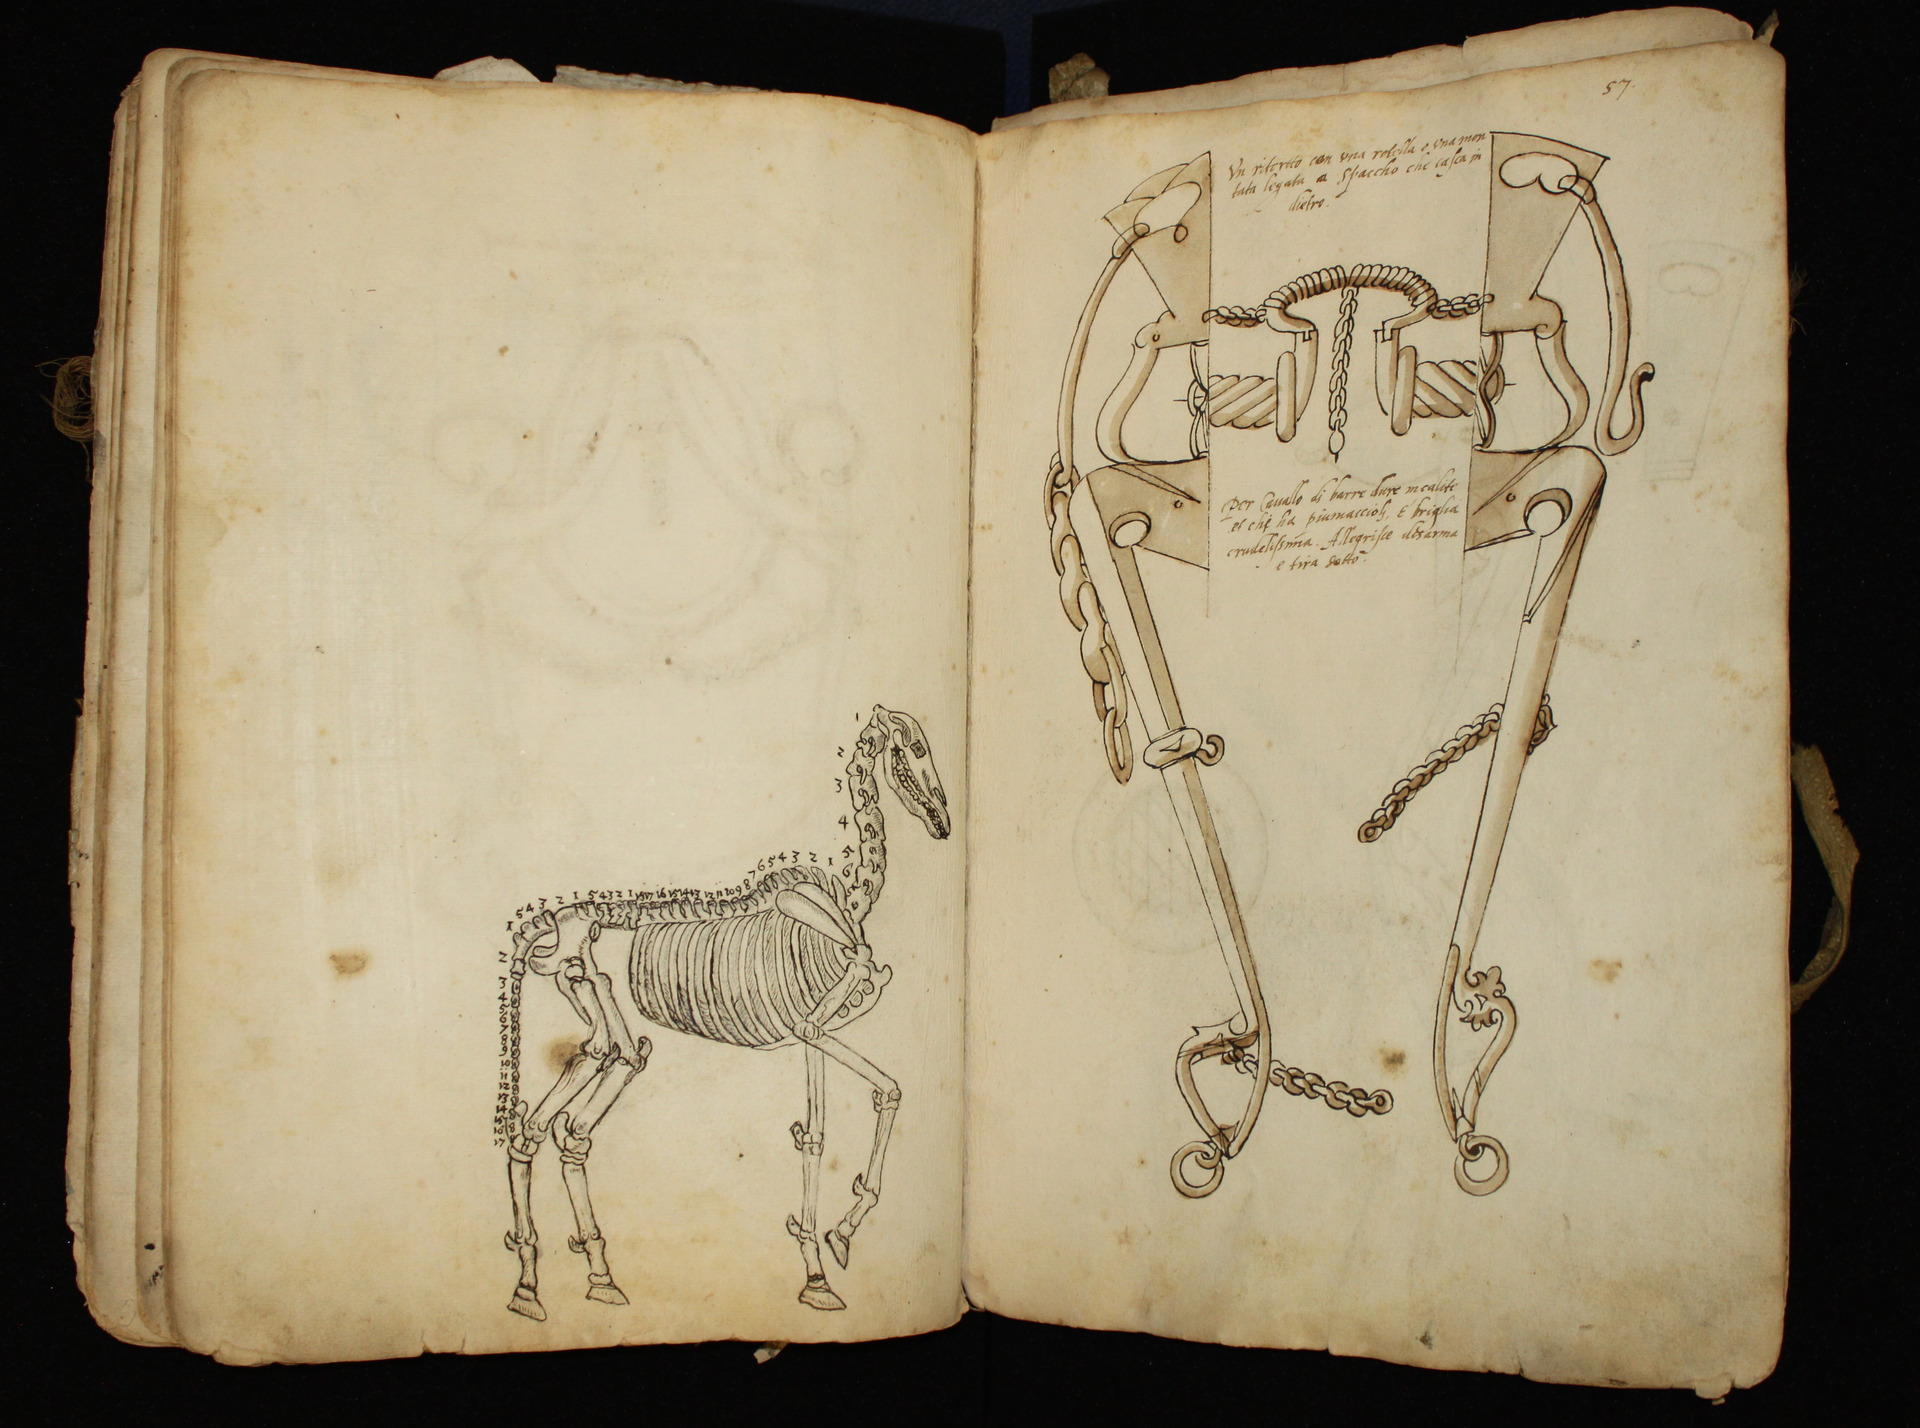 1
2
3
4
5
6
6 5 4 3 2 1
5 4 3 2 1 5 4 3 2 1 18 17 16 15 14 13 12 11 10 9 8 7
1
2
3
4
5
6
7
8
9
10
11
12
13
14
15
16
17
57.
Un ritorto con una rotella e una mon
tata legata a Spaccho che casca in
dietro.
Per Cavallo di barre dure incalite
et che ha piumaccioli, E briglia
crudelissima. Allegrisce disarma
e tira sotto.